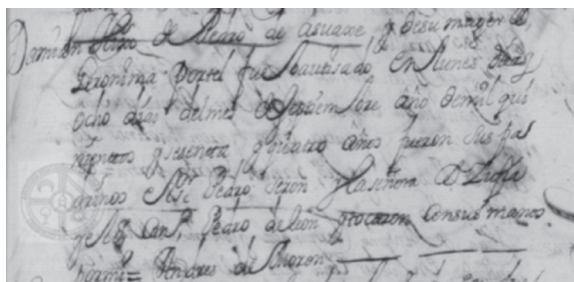 Damian hijo de Pedro de asuaxe y desu muger D
Geronima Dortel fue bautisado en lunes diez y
ocho dias del mes de septiembre año de mil qui
nientos y sesenta y quatro años fueron sus pa
drinos el Pedro Seron y la señora D
Pedro de leon y tocaron con sus manos
por mi = Andres de